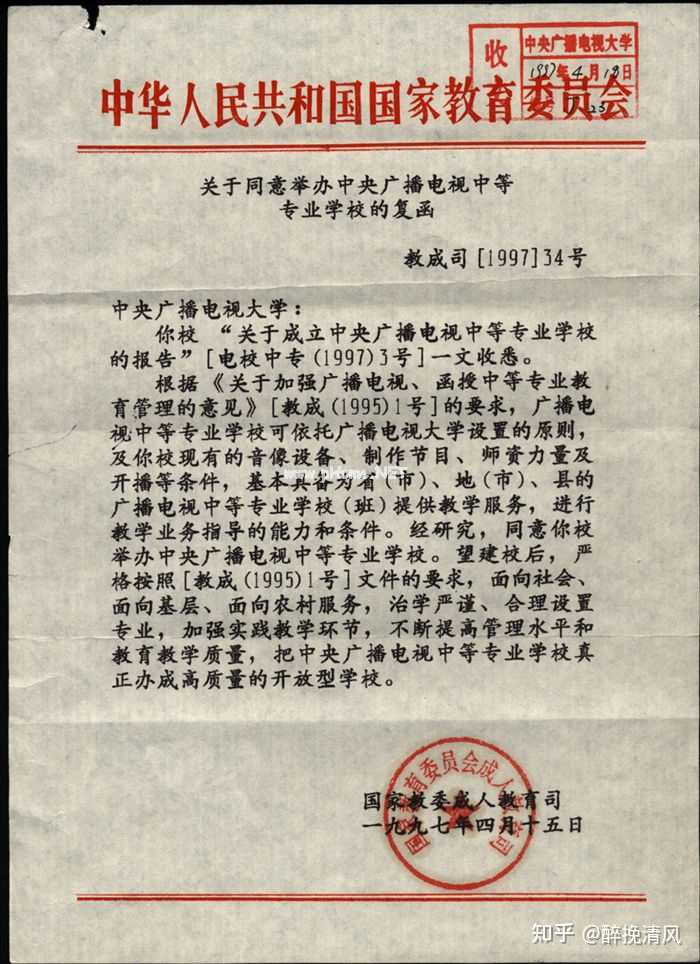 收
中央广播电视大学
1997年4月18日
中华人民共和国国家教育委员会
关于同意举办中央广播电视中等
专业学校的复函
教成司[1997]34号
中央广播电视大学：
你校“关于成立中央广播电视中等专业学校
的报告”[电校中专(1997)3号]一文收悉。
根据《关于加强广播电视、函授中等专业教
育管理的意见》[教成(1995)1号]的要求，广播电
视中等专业学校可依托广播电视大学设置的原则，
及你校现有的音像设备、制作节目、师资力量及
开播等条件，基本具备为省(市)、地(市)、县的
广播电视中等专业学校(班)提供教学服务，进行
教学业务指导的能力和条件。经研究，同意你校
举办中央广播电视中等专业学校。望建校后，严
格按照[教成(1995)1号]文件的要求，面向社会、
面向基层、面向农村服务，治学严谨、合理设置
专业，加强实践教学环节，不断提高管理水平和
教育教学质量，把中央广播电视中等专业学校真
正办成高质量的开放型学校。
国家教委成人教育司
一九九七年四月十五日
国家教育委员会成人教育司
知乎 @醉挽清风